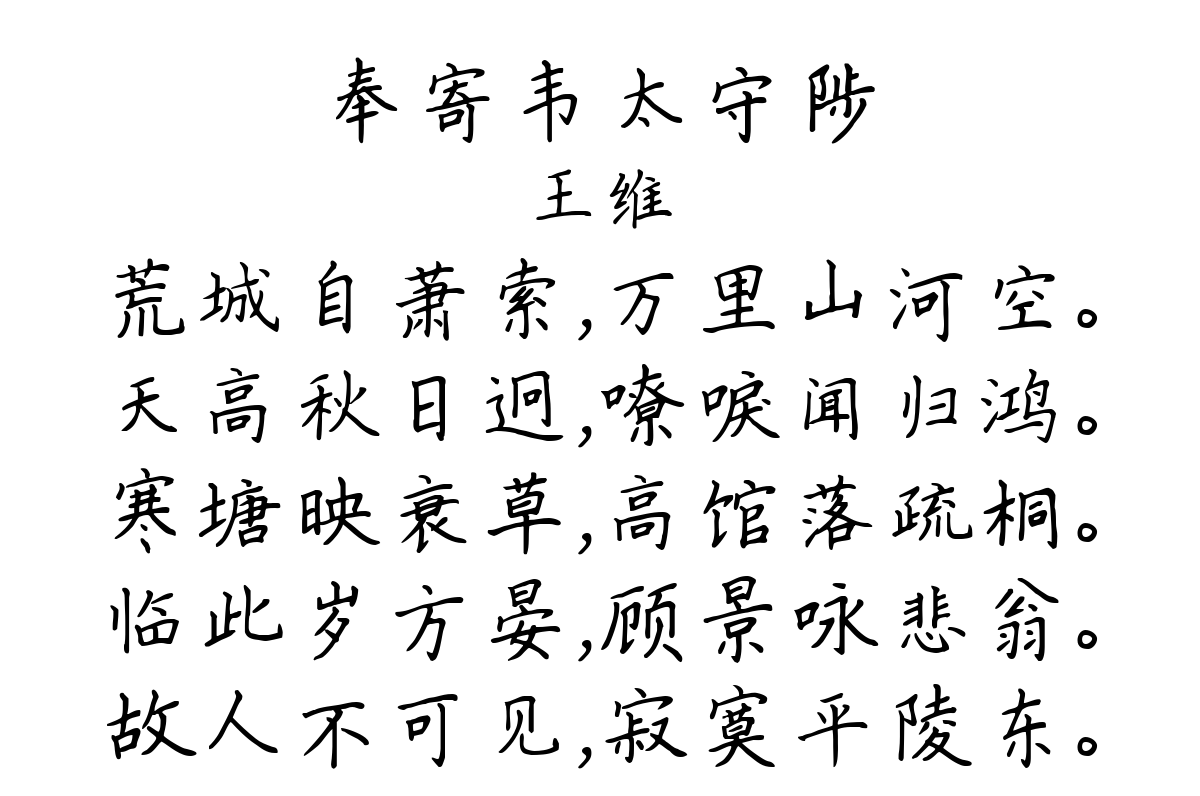 奉寄韦太守陟
王维
荒城自萧索,万里山河空。
天高秋日迥,嘹唳闻归鸿。
寒塘映衰草,高馆落疏桐。
临此岁方晏,顾景咏悲翁。
故人不可见,寂寞平陵东。